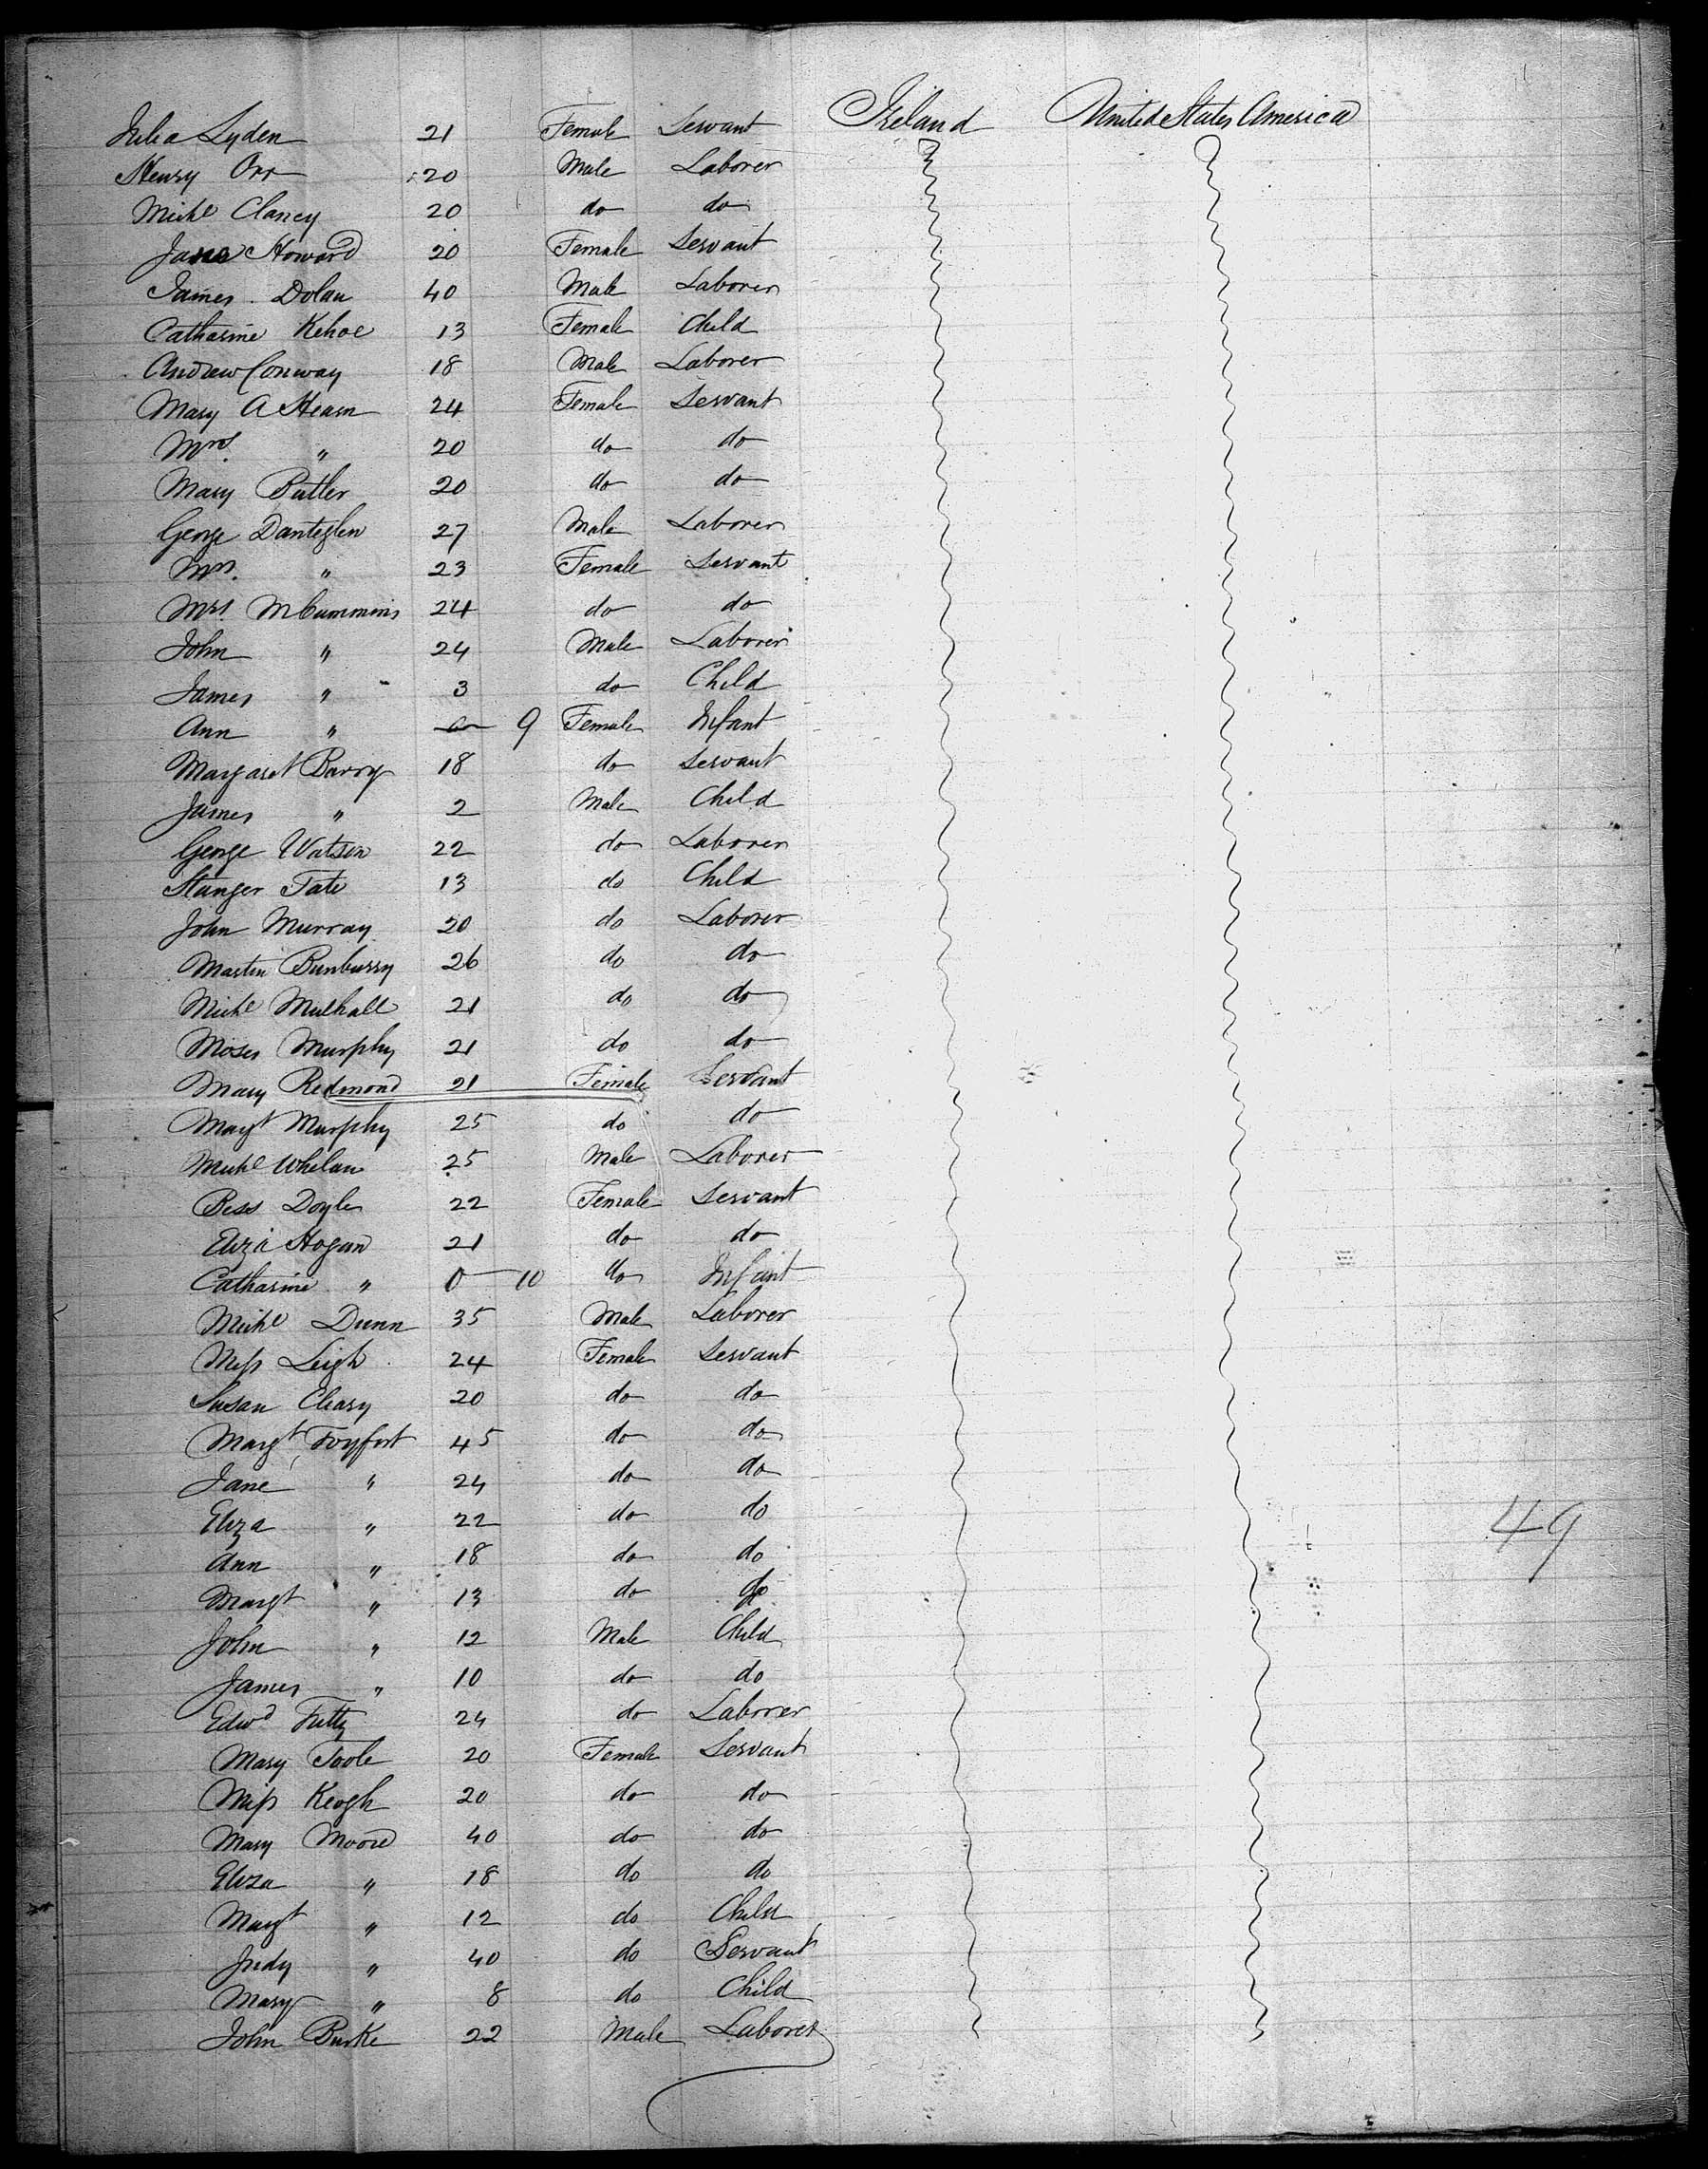 Julia Lyden 21 Female Servant Ireland United States America
Henry Orr 20 Male Laborer
Michl Clancy 20 do do
Jane Howard 20 Female Servant
James Dolan 40 Male Laborer
Catharine Kehoe 13 Female Child
Andrew Conway 18 Male Laborer
Mary A Hearn 24 Female Servant
Mrs. " 20 do do
Mary Butler 20 do do
George 27 Male Laborer
Mrs. " 23 Female Servant
Mrs. McCummins 24 do do
John " 24 Male Laborer
James " 3 do Child
Ann " 0 9 Female Infant
Margaret Barry 18 do Servant
James " 2 Male Child
George Watson 22 do Laborer
Stanger Tate 13 do Child
John Murray 20 do Laborer
Martin Bunburry 26 do do
Michl Mulhall 21 do do
Moses Murphy 21 do do
Mary Redmond 21 Female Servant
Magt Murphy 25 do do
Michl Whelan 25 Male Laborer
Bess Doyle 22 Female Servant
Eliza Hogan 21 do do
Catharine " 0 10 do Infant
Michl Dunn 35 Male Laborer
Miss Leigh 24 Female Servant
Susan Cleary 20 do do
Margt 45 do do
Jane " 24 do do
Eliza " 22 do do
Ann " 18 do do
Margt " 13 do do
John " 12 Male Child
James " 10 do do
Edwd 24 do Laborer
Mary Toole 20 Female Servant
Miss Keogh 20 do do
Mary Moore 40 do do
Eliza " 18 do do
Margt " 12 do Child
Judy " 40 do Servant
Mary " 8 do Child
John Burke 22 Male Laborer
49